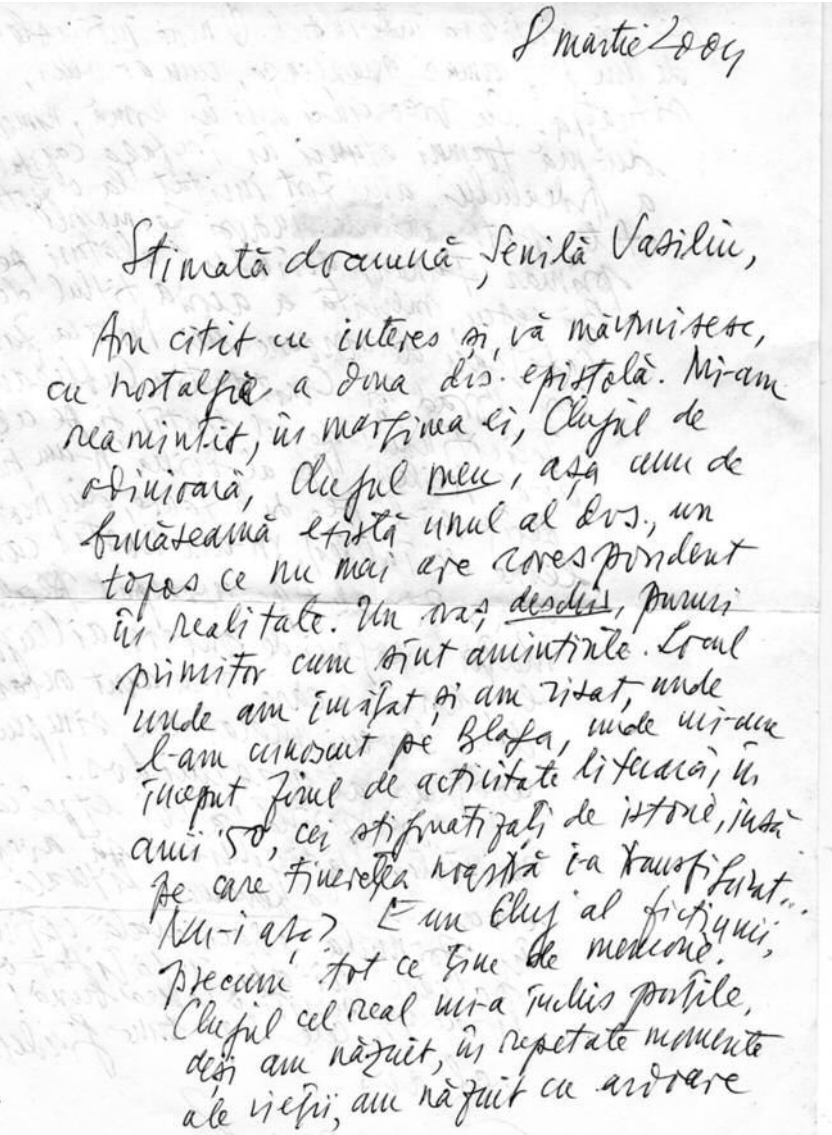 8 martie 2004
Stimată doamnă Senilă Vasiliu,
Am citit cu interes și, vă mărturisesc,
cu nostalgie a doua dvs. epistolă. Mi-am
reamintit, în marginea ei, Clujul de
odinioară, Clujul meu, așa cum de
bunăseamă există unul al dvs., un
topos ce nu mai are corespondent
în realitate. Un oraș deschis, pururi
primitor cum sînt amintirile. Locul
unde am învățat și am visat, unde
l-am cunoscut pe Blaga, unde mi-am
început firul de activitate literară, în
anii '50, cei stigmatizați de istorie, însă
pe care tinerețea noastră i-a transfigurat...
Nu-i așa? E un Cluj al ficțiunii,
precum tot ce ține de memorie.
Clujul cel real mi-a închis porțile,
deși am năzuit, în repetate momente
ale vieții, am năzuit cu ardoare